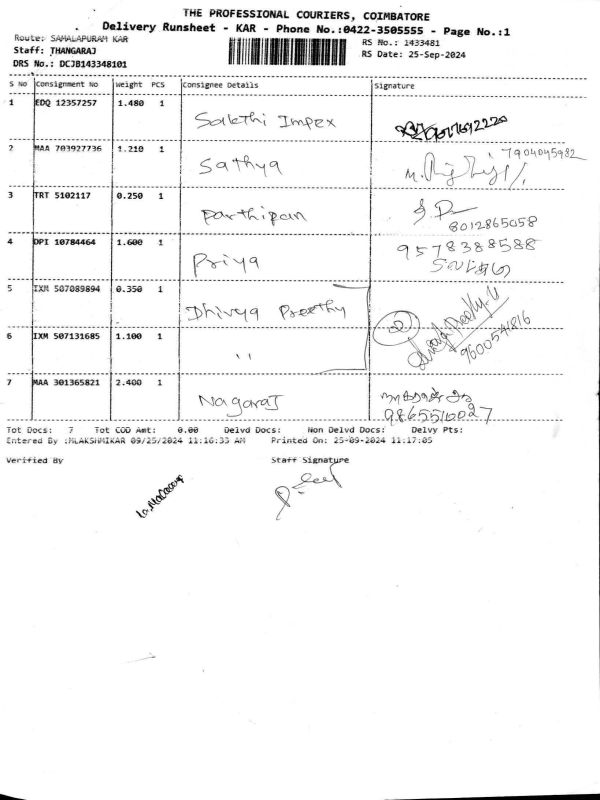 THE PROFESSIONAL COURIERS, COIMBATORE
Delivery Runsheet - KAR - Phone No.:0422-3505555 - Page No.:1
Route: SAMALAPURAM KAR
RS No.: 1433481
Staff: THANGARAJ
RS Date: 25-Sep-2024
DRS No.: DCJB143348101
S No Consignment No Weight PCS Consignee Details Signature
1 EDQ 12357257 1.480 1 Sakthi Impex
2 MAA 703927736 1.210 1 Sathya 7904045982
3 TRT 5102117 0.250 1 Parthipan
8012865058
4 DPI 10784464 1.600 1 Priya 9578388588
5 IXM 507089894 0.350 1 Dhivya Preethy
6 IXM 507131685 1.100 1 " 2 Dhivya Preethy.U 9600541816
7 MAA 301365821 2.400 1 Nagaraj
9865510027
Tot Docs: 7 Tot COD Amt: 0.00 Delvd Docs: Non Delvd Docs: Delvy Pts:
Entered By :MLAKSHMIKAR 09/25/2024 11:16:33 AM Printed On: 25-09-2024 11:17:05
Verified By Staff Signature